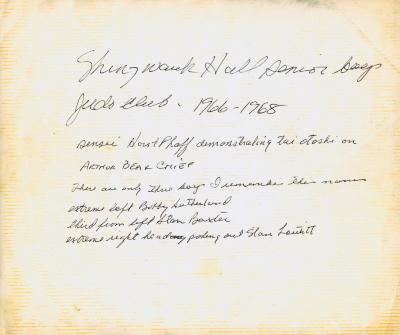 Shingwauk Hall Senior Boys
Judo Club - 1966-1968
Sensei Horst Phaff demonstrating tai otoshi on
ARTHUR BEAR CHIEF
There are only three boys I remember the names
extreme left Bobby Sutherland
third from left Stan Baxter
extreme right head poking out Stan Louttit